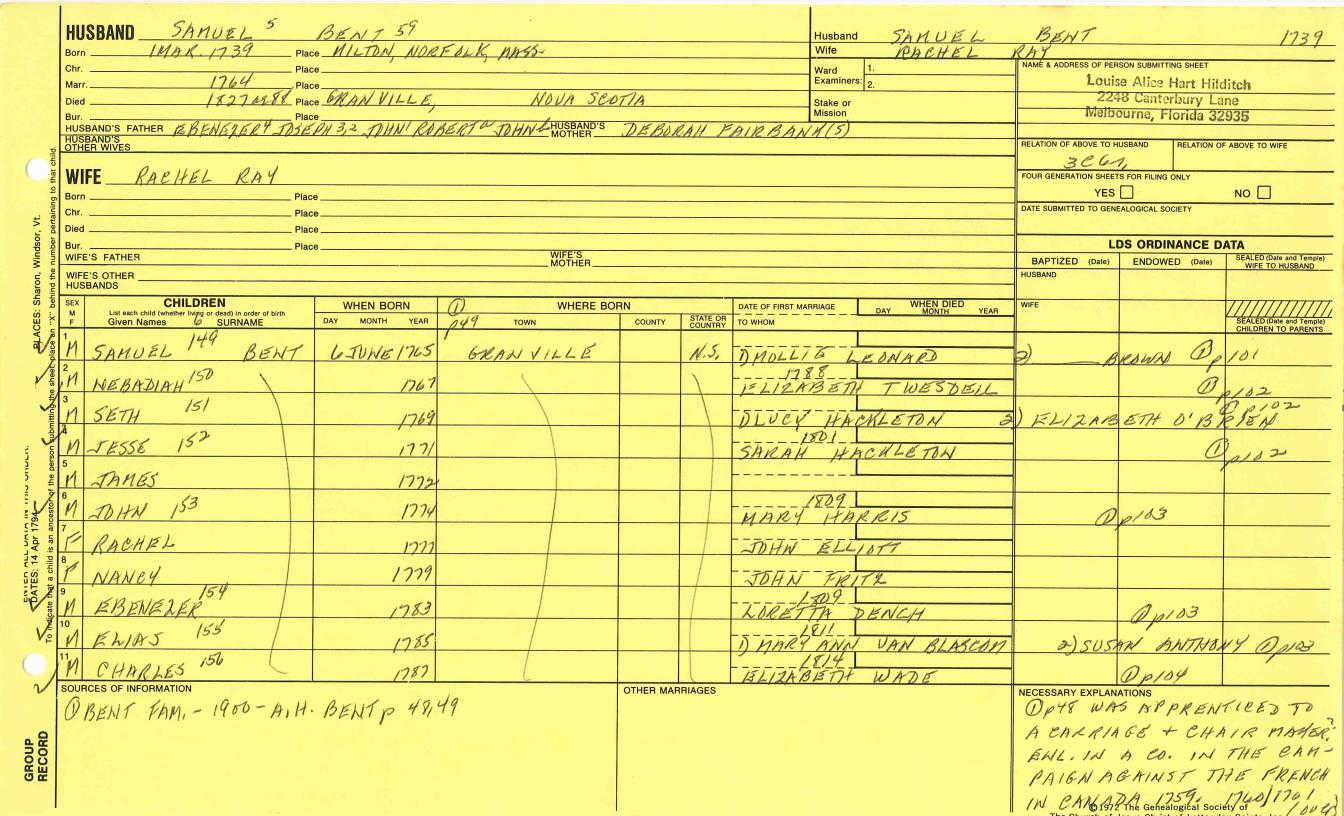 HUSBAND SAMUEL 5 BENT 59
Born 1 MAR. 1739 Place MILTON, NORFOLK, MASS.
Chr. Place
Marr. 1764 Place
Died 1827 or 28 Place GRANVILLE, NOVA SCOTIA
Bur. Place
HUSBAND'S FATHER EBENEZER4 JOSEPH 3,2 JOHN1 ROBERT a JOHN b HUSBAND'S MOTHER DEBORAH FAIRBANK(S)
HUSBAND'S OTHER WIVES
Husband SAMUEL BENT 1739
Wife RACHEL RAY
Ward Examiners: 1.
2.
Stake or Mission
NAME & ADDRESS OF PERSON SUBMITTING SHEET
Louise Alice Hart Hilditch
2248 Canterbury Lane
Melbourne, Florida 32935
RELATION OF ABOVE TO HUSBAND RELATION OF ABOVE TO WIFE
FOUR GENERATION SHEETS FOR FILING ONLY
YES NO
DATE SUBMITTED TO GENEALOGICAL SOCIETY
WIFE RACHEL RAY
Born Place
Chr. Place
Died Place
Bur. Place
WIFE'S FATHER WIFE'S MOTHER
WIFE'S OTHER HUSBANDS
LDS ORDINANCE DATA
BAPTIZED (Date) ENDOWED (Date) SEALED (Date and Temple) WIFE TO HUSBAND
HUSBAND
WIFE
SEALED (Date and Temple) CHILDREN TO PARENTS
SEX M F CHILDREN WHEN BORN ① p49 WHERE BORN DATE OF FIRST MARRIAGE WHEN DIED
List each child (whether living or dead) in order of birth
Given Names 6 SURNAME DAY MONTH YEAR TOWN COUNTY STATE OR COUNTRY TO WHOM DAY MONTH YEAR
1 M SAMUEL 149 BENT 6 JUNE 1765 GRANVILLE N.S. 1) MOLLIE LEONARD 2) BROWN ① p101
2 M NEBADIAH 150 1767 1788 ELIZABETH TWESDEIL ① p102
3 M SETH 151 1769 1) LUCY HACKLETON 2) ELIZABETH O'BRIEN ① p102
4 M JESSE 152 1771 1801 SARAH HACKLETON ① p102
5 M JAMES 1772
6 M JOHN 153 1774 1809 MARY HARRIS ① p103
7 F RACHEL 1777 JOHN ELLIOTT
8 F NANCY 1779 JOHN FRITZ
9 M EBENEZER 154 1783 1809 LORETTA DENCH ① p103
10 M ELIAS 155 1785 1811 1) MARY ANN VAN BLASCOM 2) SUSAN ANTHONY ① p103
11 M CHARLES 156 1787 1814 ELIZABETH WADE ① p104
SOURCES OF INFORMATION
① BENT FAM. - 1900 - A.H. BENT p 48,49
OTHER MARRIAGES
NECESSARY EXPLANATIONS
① p48 WAS APPRENTICED TO
A CARRIAGE + CHAIR MAKER.
ENL. IN A CO. IN THE CAM-
PAIGN AGAINST THE FRENCH
IN CANADA 1759. 1760/1761
(over)
©1972 The Genealogical Society of
PLACES: Sharon, Windsor, Vt.
DATES: 14 Apr 1794
To indicate that a child is an ancestor of the person submitting the sheet, place an "X" behind the number pertaining to that child.
GROUP RECORD